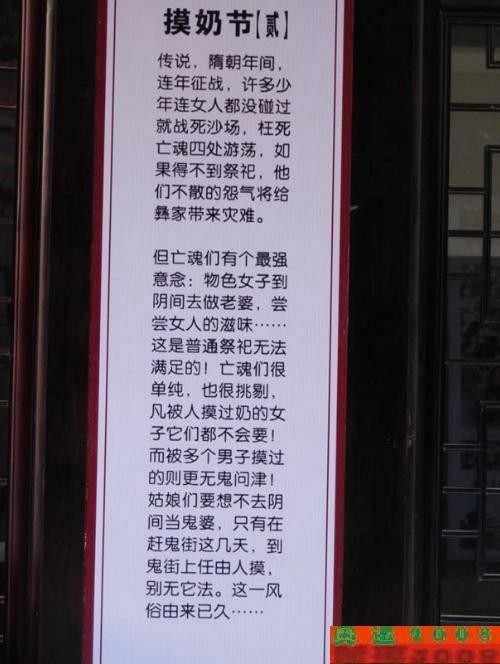 摸奶节【贰】
传说，隋朝年间，
连年征战，许多少
年连女人都没碰过
就战死沙场，枉死
亡魂四处游荡，如
果得不到祭祀，他
们不散的怨气将给
彝家带来灾难。
但亡魂们有个最强
意念：物色女子到
阴间去做老婆，尝
尝女人的滋味……
这是普通祭祀无法
满足的！亡魂们很
单纯，也很挑剔，
凡被人摸过奶的女
子它们都不会要！
而被多个男子摸过
的则更无鬼问津！
姑娘们要想不去阴
间当鬼婆，只有在
赶鬼街这几天，到
鬼街上任由人摸，
别无它法。这一风
俗由来已久……